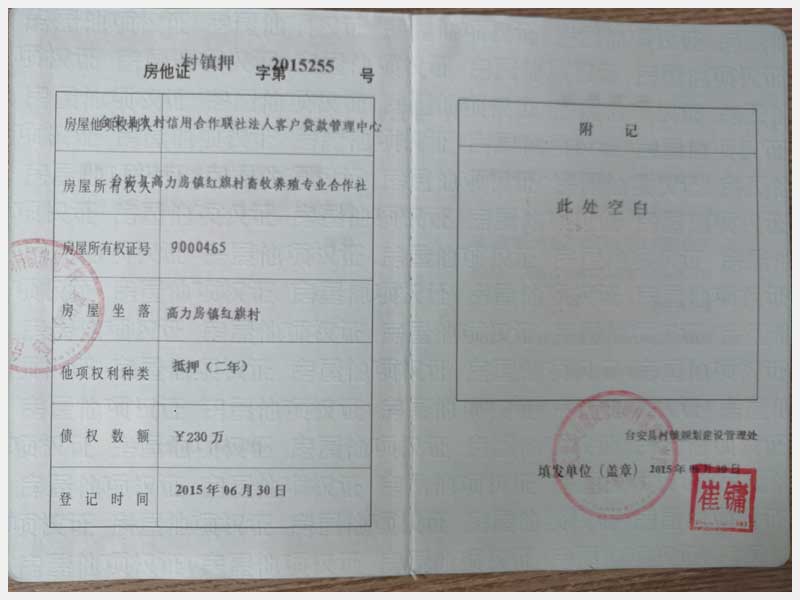 房他证 村镇押 字第 2015255 号
房屋他项权利人 台安县农村信用合作联社法人客户贷款管理中心
房屋所有权人 台安县高力房镇红旗村畜牧养殖专业合作社
房屋所有权证号 9000465
房屋坐落 高力房镇红旗村
他项权利种类 抵押（二年）
债权数额 ￥230万
登记时间 2015年06月30日
附记
此处空白
台安县村镇规划建设管理处
填发单位（盖章） 2015年06月30日
崔镛